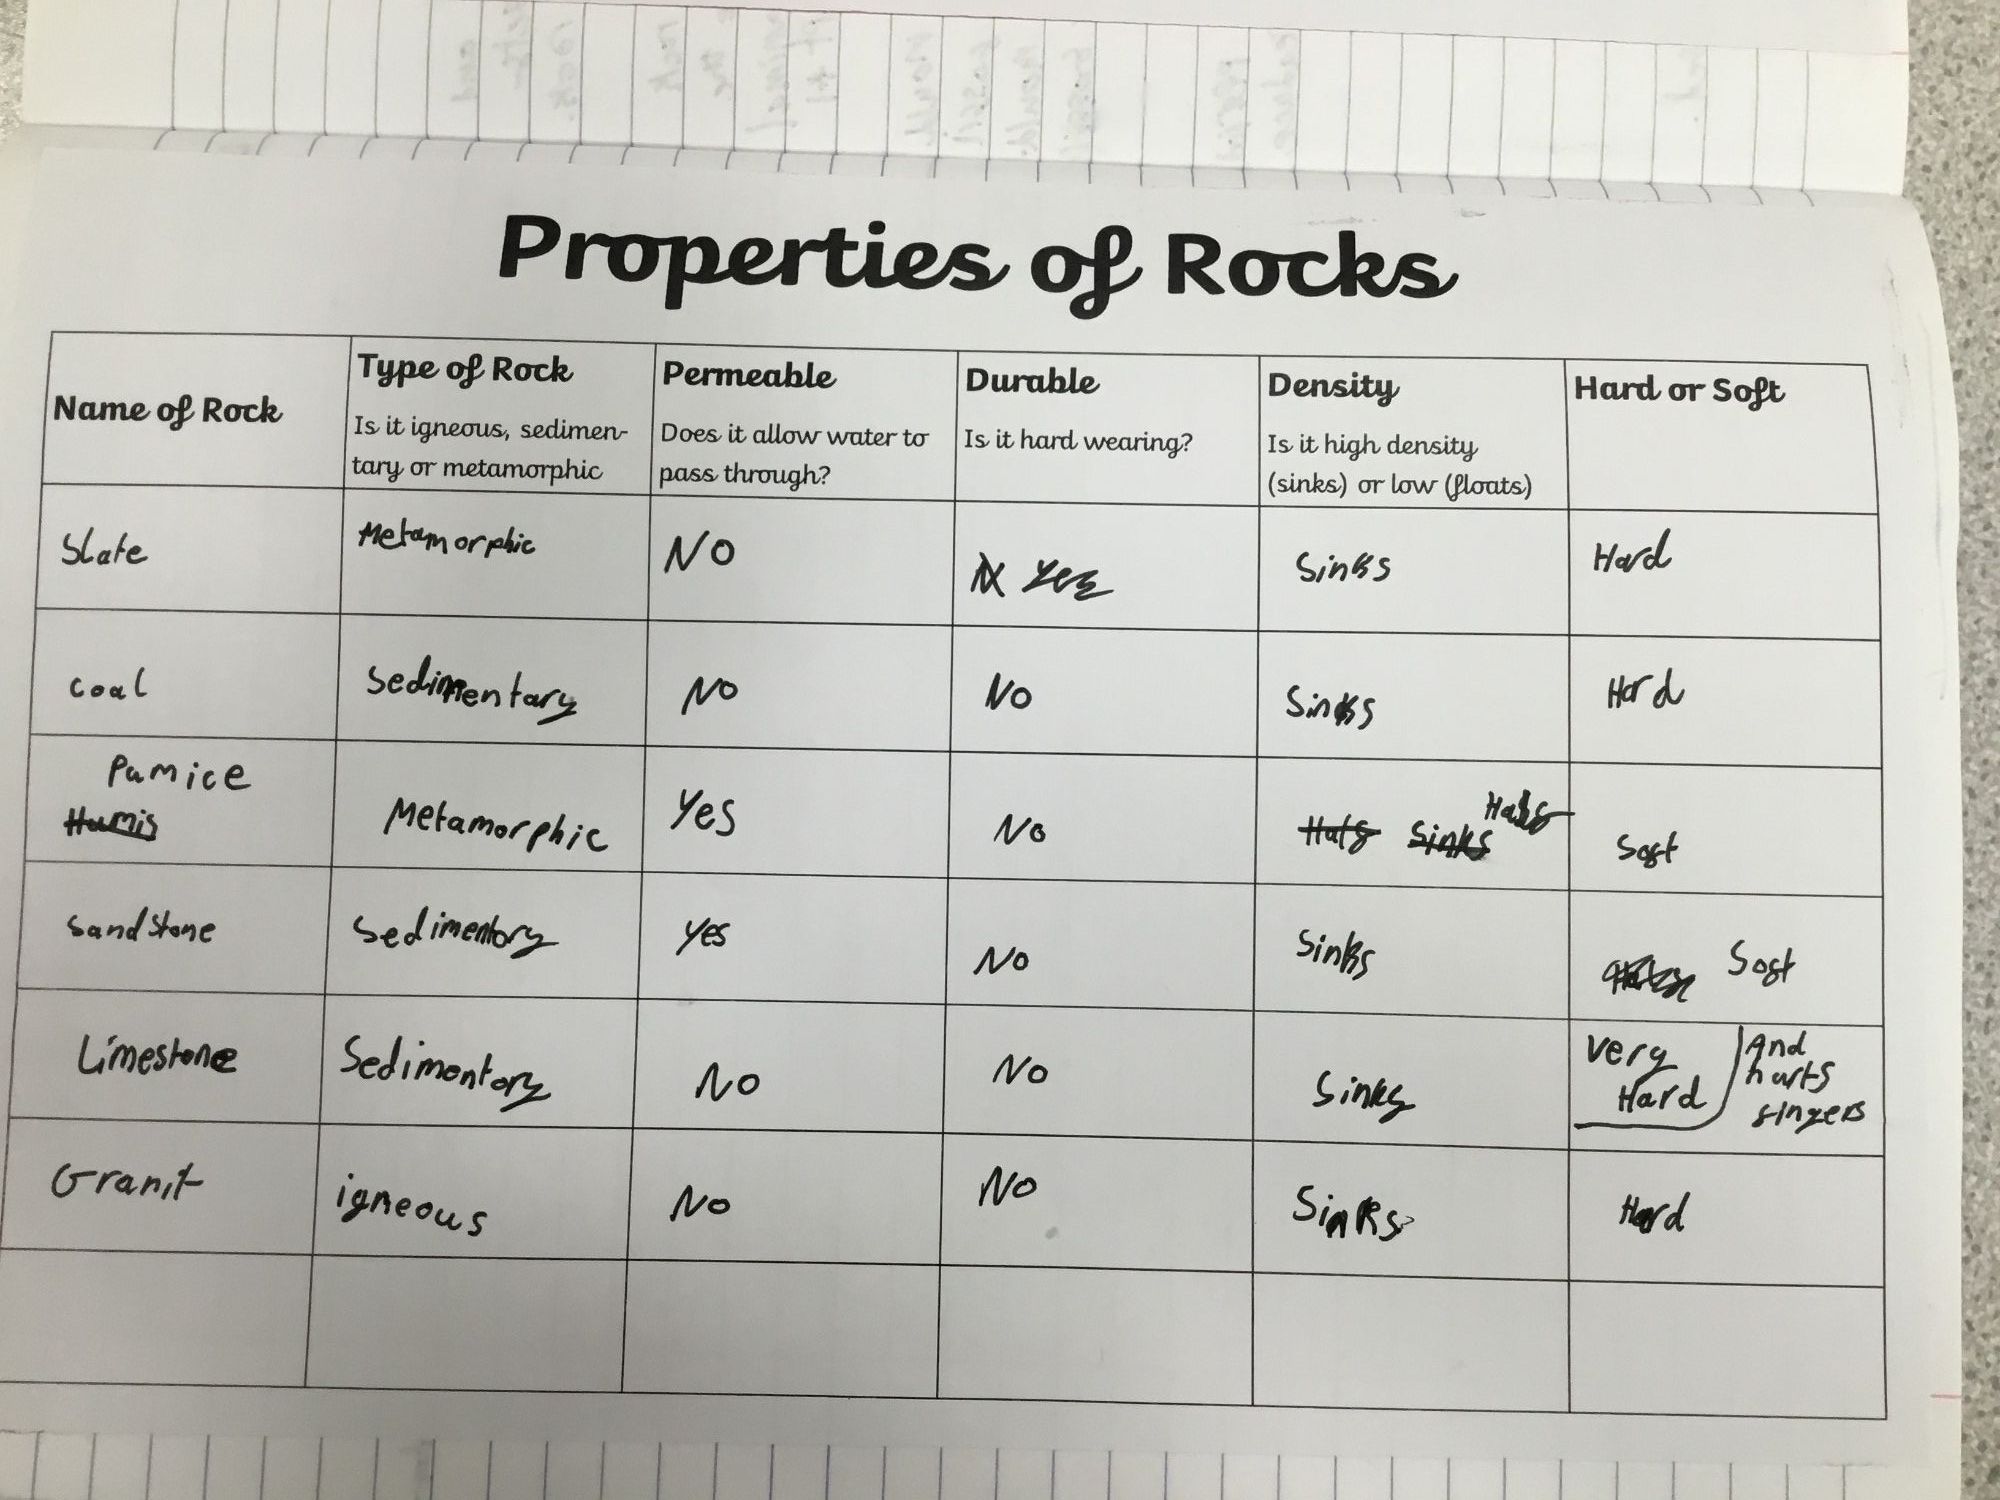 Properties of Rocks
Name of Rock
Type of Rock
Is it igneous, sedimen-
tary or metamorphic
Permeable
Does it allow water to
pass through?
Durable
Is it hard wearing?
Density
Is it high density
(sinks) or low (floats)
Hard or Soft
Slate
Metamorphic
NO
Yes
Sinks
Hard
coal
Sedimentary
No
No
Sinks
Hard
Pumice
Humis
Metamorphic
Yes
No
Half Sinks Half
Soft
Sandstone
Sedimentory
yes
No
Sinks
Soft
Limestone
Sedimentory
No
No
Sinks
very
Hard
And
hurts
fingers
Granit
igneous
No
No
Sinks
Hard